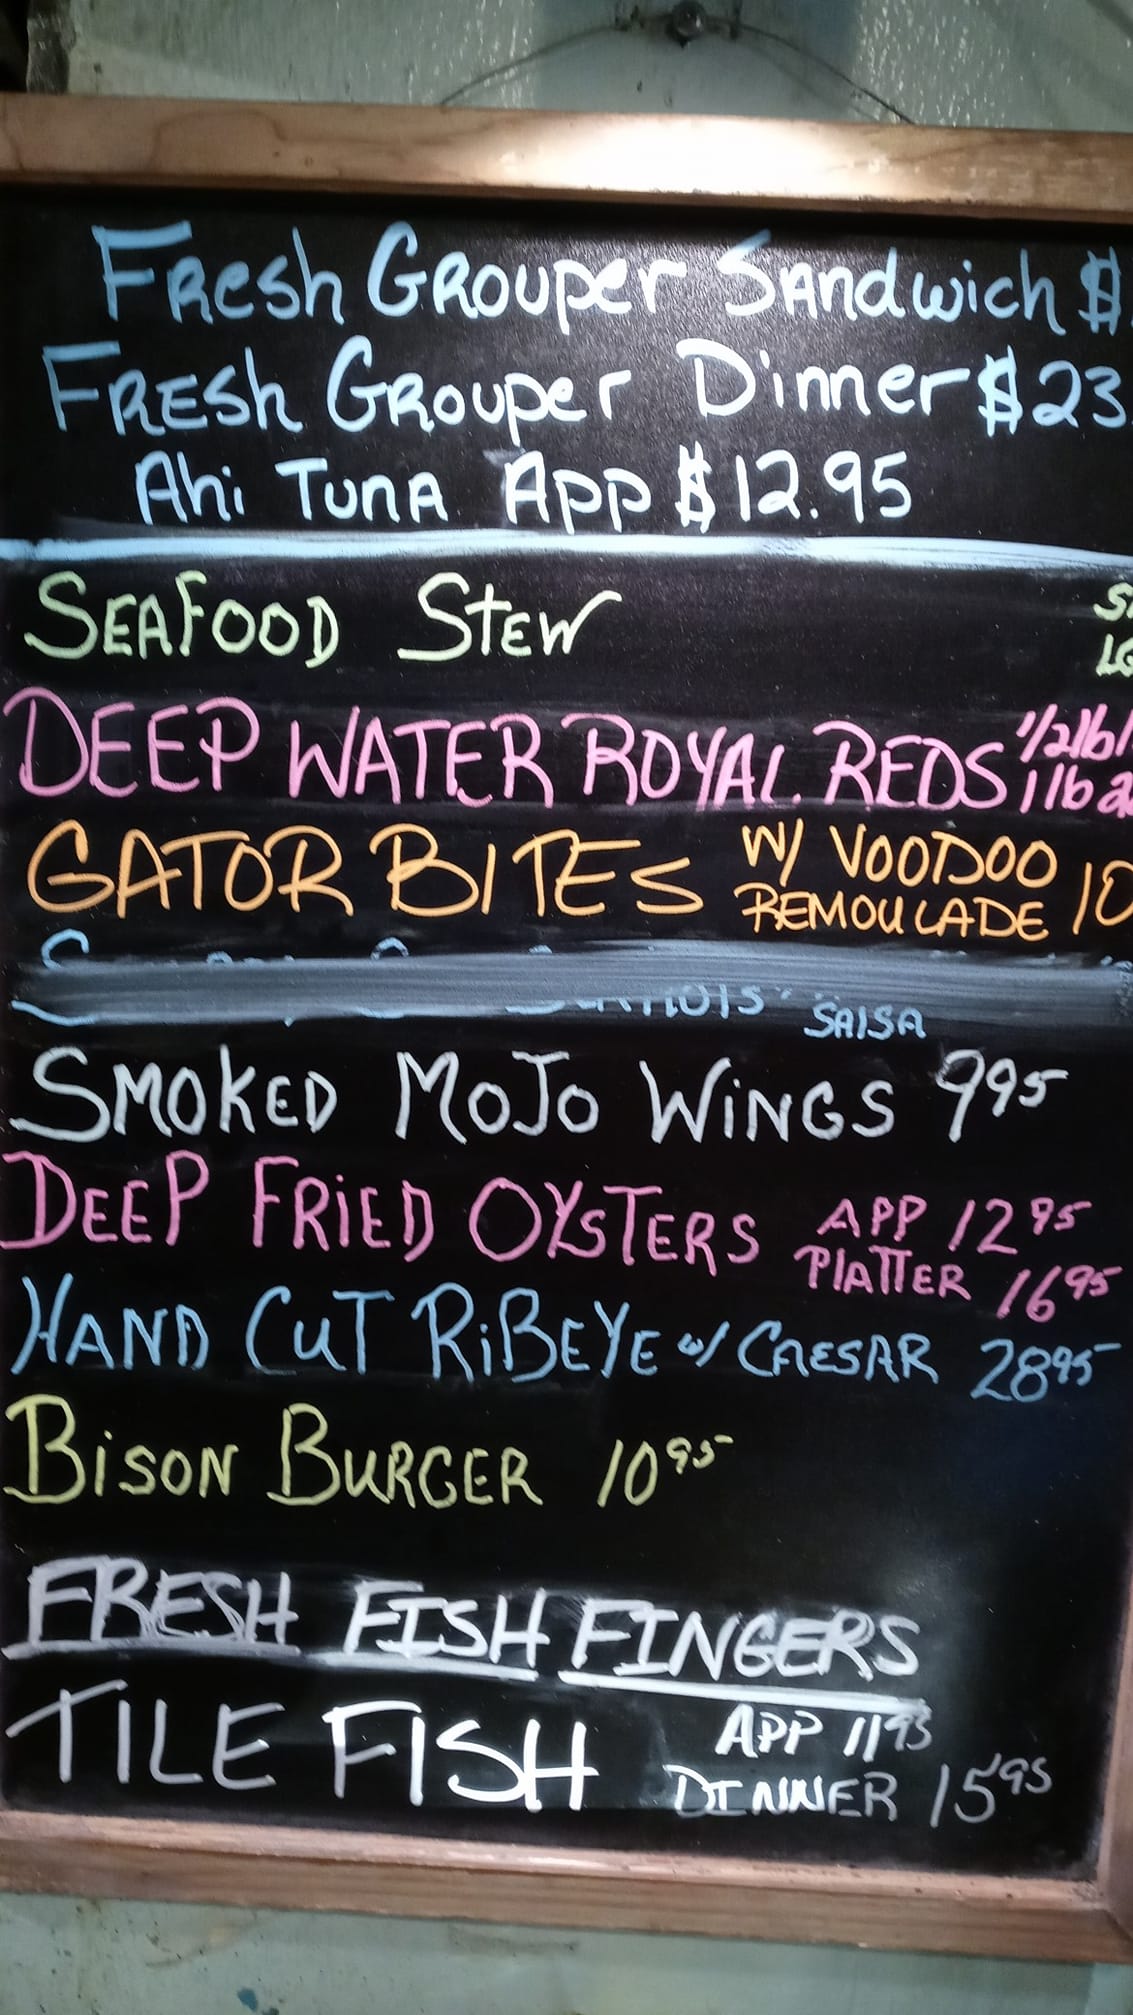 Fresh Grouper Sandwich $
FRESh GROUPER Dinner $23
Ahi TUNA App $12.95
SEAFOOD STEW
LG
DEEP WATER ROYAL REDS 1/2lb
1lb
GATOR BITES W/ VOODOO
REMOULADE 10
SALSA
SMOKED MOJO WINGS 995
DEEP FRIED OYSTERS APP 1295
PLATTER 1695
HAND CUT RIBEYE w/ CAESAR 2895
BISON BURGER 1095
FRESH FISH FINGERS
TILE FISH APP 1195
DINNER 1595